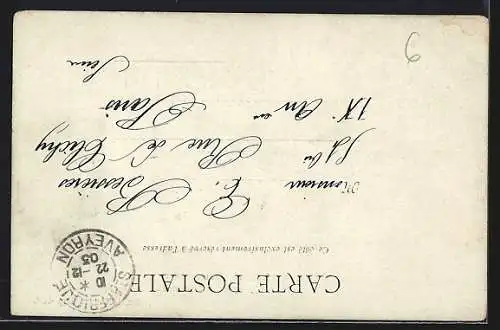 CARTE POSTALE
Ce côté est exclusivement réservé à l'adresse
Monsieur
E. Bessières
Rue de Clichy
IX Arr
Paris
Seine
AVEYRON
10 *
22 -12
03
6